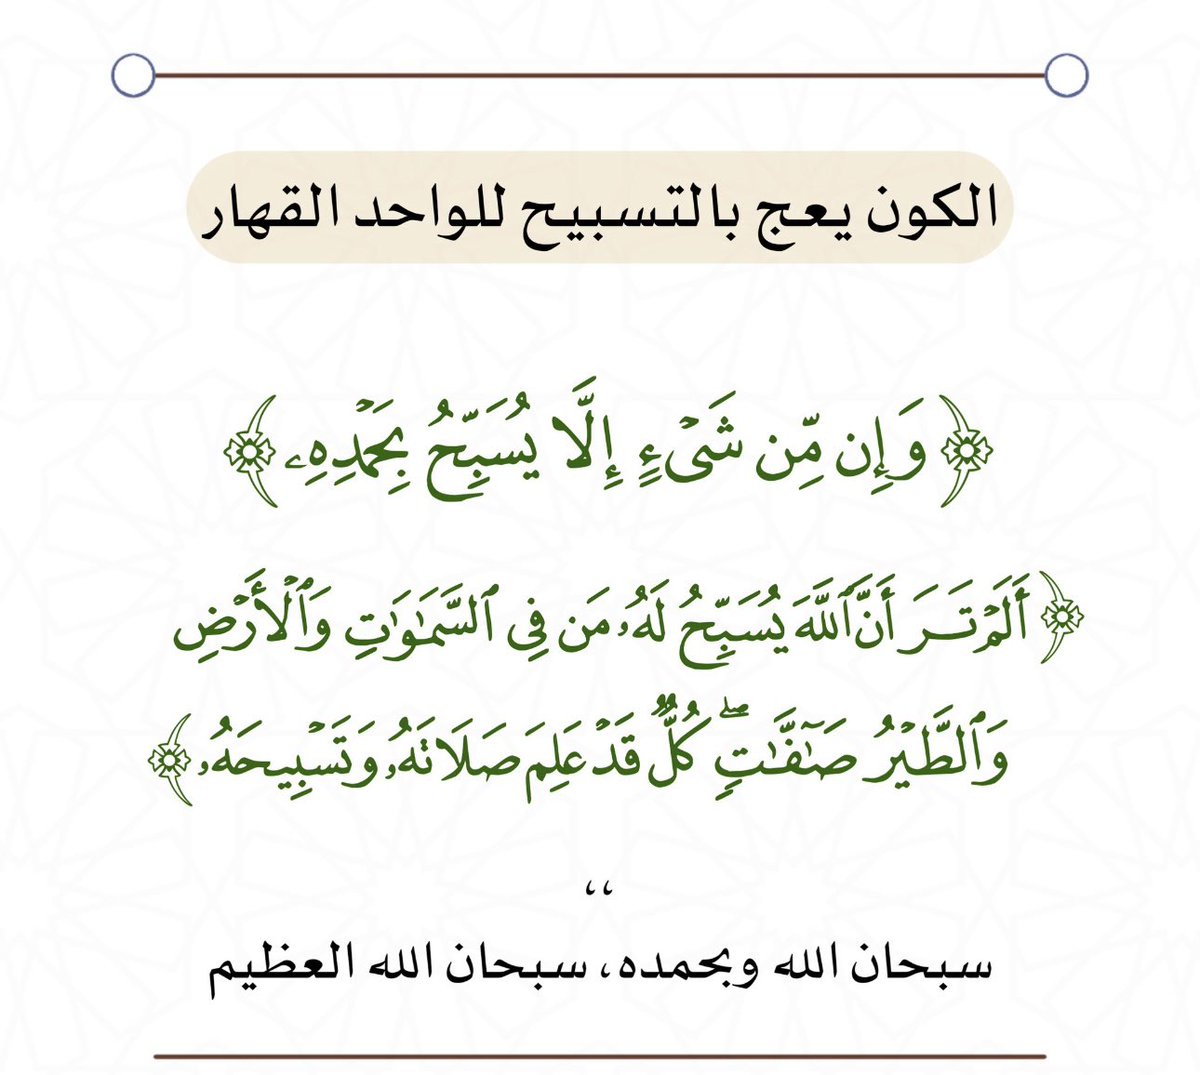 الكون يعج بالتسبيح للواحد القهار
﴿وَإِن مِّن شَىْءٍ إِلَّا يُسَبِّحُ بِحَمْدِهِۦ﴾
﴿أَلَمْ تَرَ أَنَّ ٱللَّهَ يُسَبِّحُ لَهُۥ مَن فِى ٱلسَّمَٰوَٰتِ وَٱلْأَرْضِ
وَٱلطَّيْرُ صَٰٓفَّٰتٍۢ ۖ كُلٌّۭ قَدْ عَلِمَ صَلَاتَهُۥ وَتَسْبِيحَهُۥ﴾
،،
سبحان الله وبحمده، سبحان الله العظيم